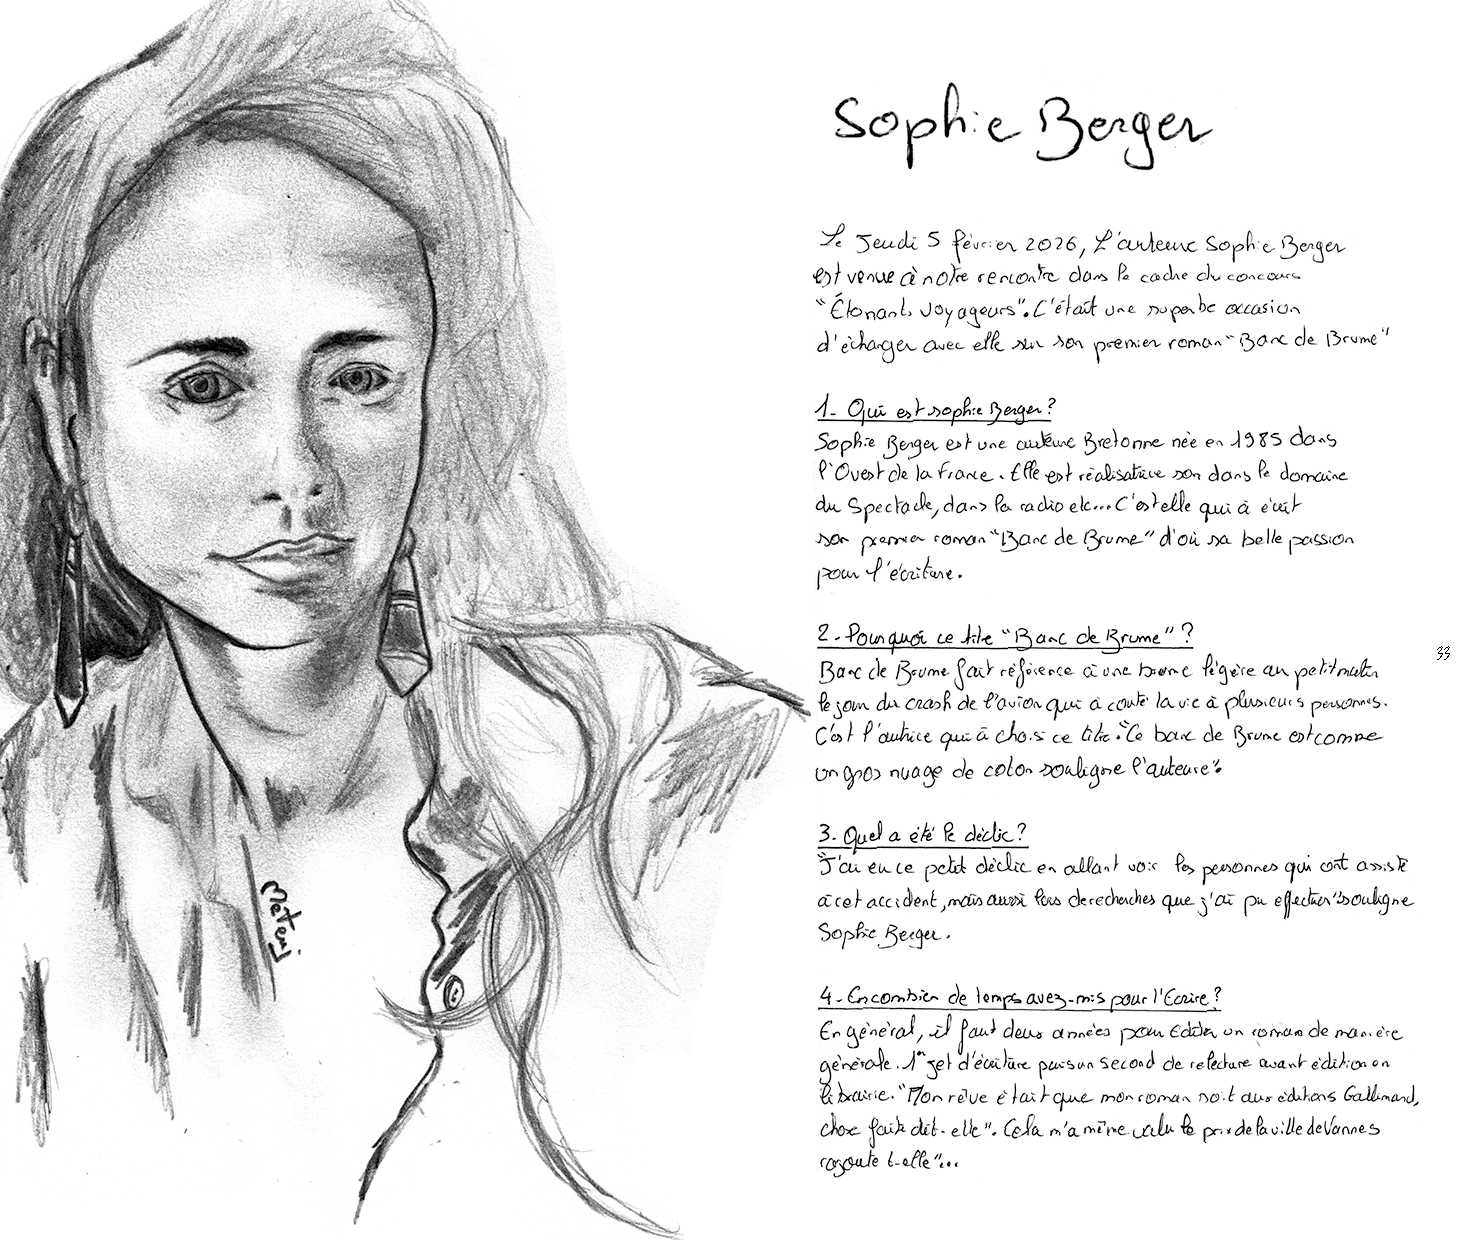 Sophie Berger
Le Jeudi 5 février 2026, L'auteure Sophie Berger
est venue à notre rencontre dans le cadre du concours
"Étonants voyageurs". C'était une superbe occasion
d'échanger avec elle sur son premier roman "Banc de Brume"
1- Qui est sophie Berger?
Sophie Berger est une auteure Bretonne née en 1985 dans
l'Ouest de la France. Elle est réalisatrice son dans le domaine
du Spectacle, dans la radio etc... C'est elle qui à écrit
son premier roman "Banc de Brume" d'où sa belle passion
pour l'écriture.
2-Pourquoi ce titre "Banc de Brume" ?
Banc de Brume fait référence à une brume légère au petit matin
le jour du crash de l'avion qui à couté la vie à plusieurs personnes.
C'est l'autrice qui à choisi ce titre. "Ce banc de Brume est comme
un gros nuage de coton souligne l'auteure".
3- Quel a été le déclic?
"J'ai eu ce petit déclic en allant voir les personnes qui ont assisté
à cet accident, mais aussi lors de recherches que j'ai pu effectuer" souligne
Sophie Berger.
4- En combien de temps avez-mis pour l'Ecrire?
En général, il faut deux années pour Editer un roman de manière
générale. 1er jet d'écriture puis un second de relecture avant édition en
librairie. "Mon rêve était que mon roman soit aux éditions Gallimard,
chose faite dit-elle". Cela m'a même valu le prix de la ville de Vannes
rajoute t-elle"...
33